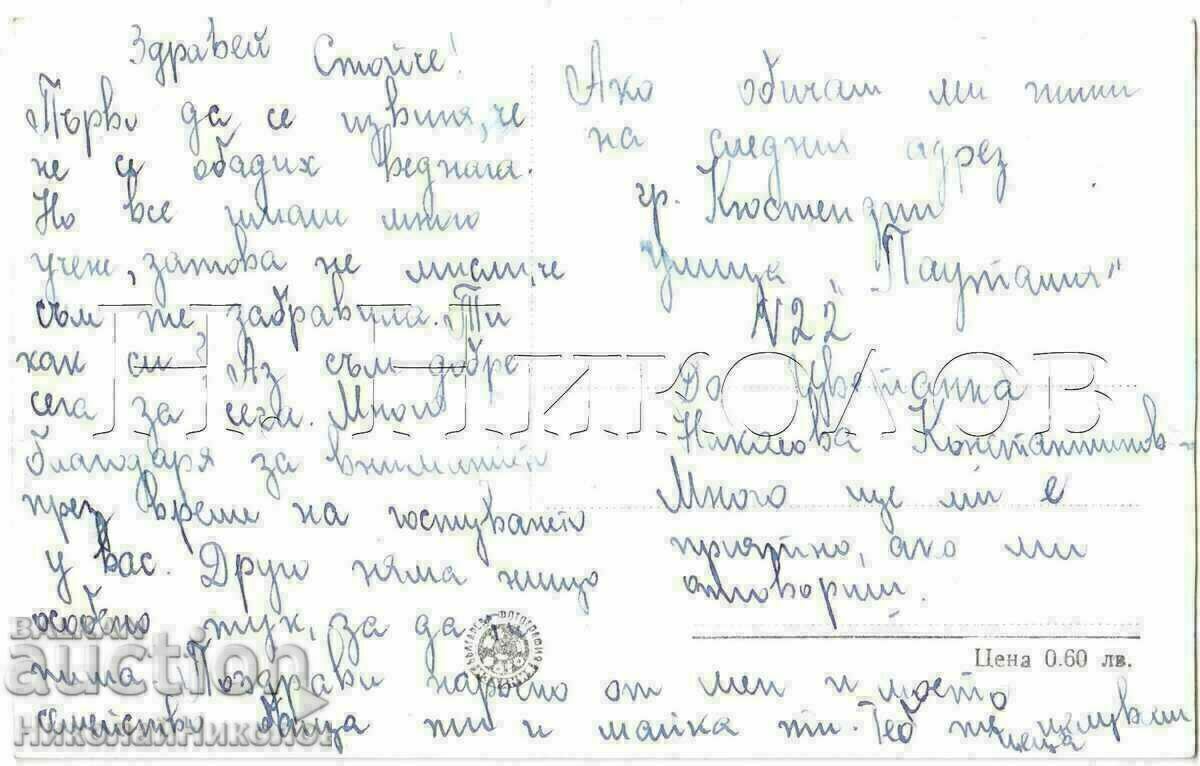 Здравей Стойче!
Първо да се извиня, че
не се обадих веднага.
Но все имаш много
учене, затова не мисли, че
съм те забравила. Ти
как си? Аз съм добре
сега за сега. Много
благодаря за вниманието
през време на гостуването
у вас. Друго няма нищо
особено тук, за да ти
пиша. Поздрави наречно от мен и моето
семейство баща ти и майка ти. Теб те целувам
Ако обичаш ми пиши
на следния адрез
гр. Кюстендил
улица "Пауталия"
N22
До Цветанка
Николова Константинов-
Много ще ми е
приятно, ако ми
отговориш.
Цена 0.60 лв.
Н. НИКОЛОВ
auction
НИКОЛАЙНИКОЛОГ